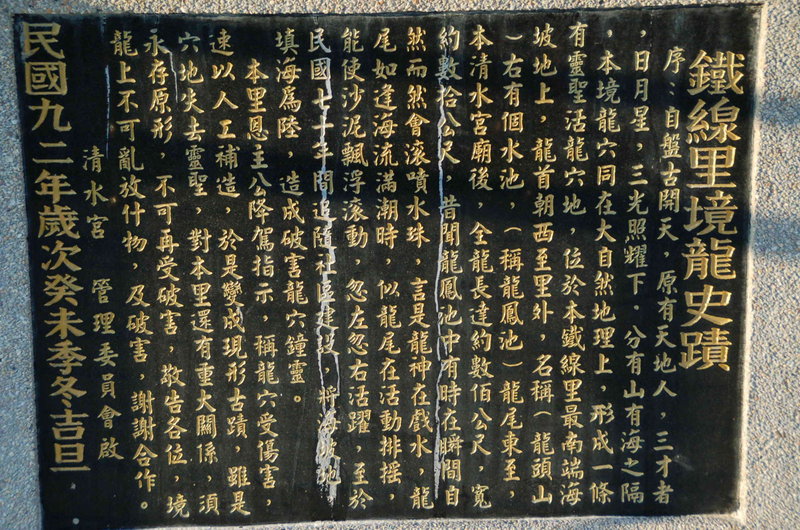 鐵線里境龍史蹟
序：自盤古開天，原有天地人，三才者
，日月星，三光照耀下．分有山有海之隔
，本境龍穴同在大自然地理上，形成一條
有靈聖活龍穴地，位於本鐵線里最南端海
坡地上，龍首朝西至里外，名稱（龍頭山
）右有個水池，（稱龍鳳池）龍尾東至，
本清水宮廟後，全龍長達約數佰公尺，寬
約數拾公尺，昔聞龍鳳池中有時在瞬間自
然而然會滾噴水珠，言是龍神在戲水，龍
尾如逢海流滿潮時，似龍尾在活動排搖，
能使沙泥飄浮滾動，忽左忽右活躍，至於
民國七十年間追隨社區建設，將海坡地
填海為陸，造成破害龍穴鐘靈。
本里恩主公降駕指示　稱龍穴受傷害，
速以人工補造，於是變成現形古蹟，雖是
穴地失去靈聖，對本里還有重大關係，須
永存原形，不可再受破害，敬告各位，境
龍上不可亂放什物，及破害，謝謝合作。
清水宮　管理委員會啟
民國九二年歲次癸未季冬吉旦